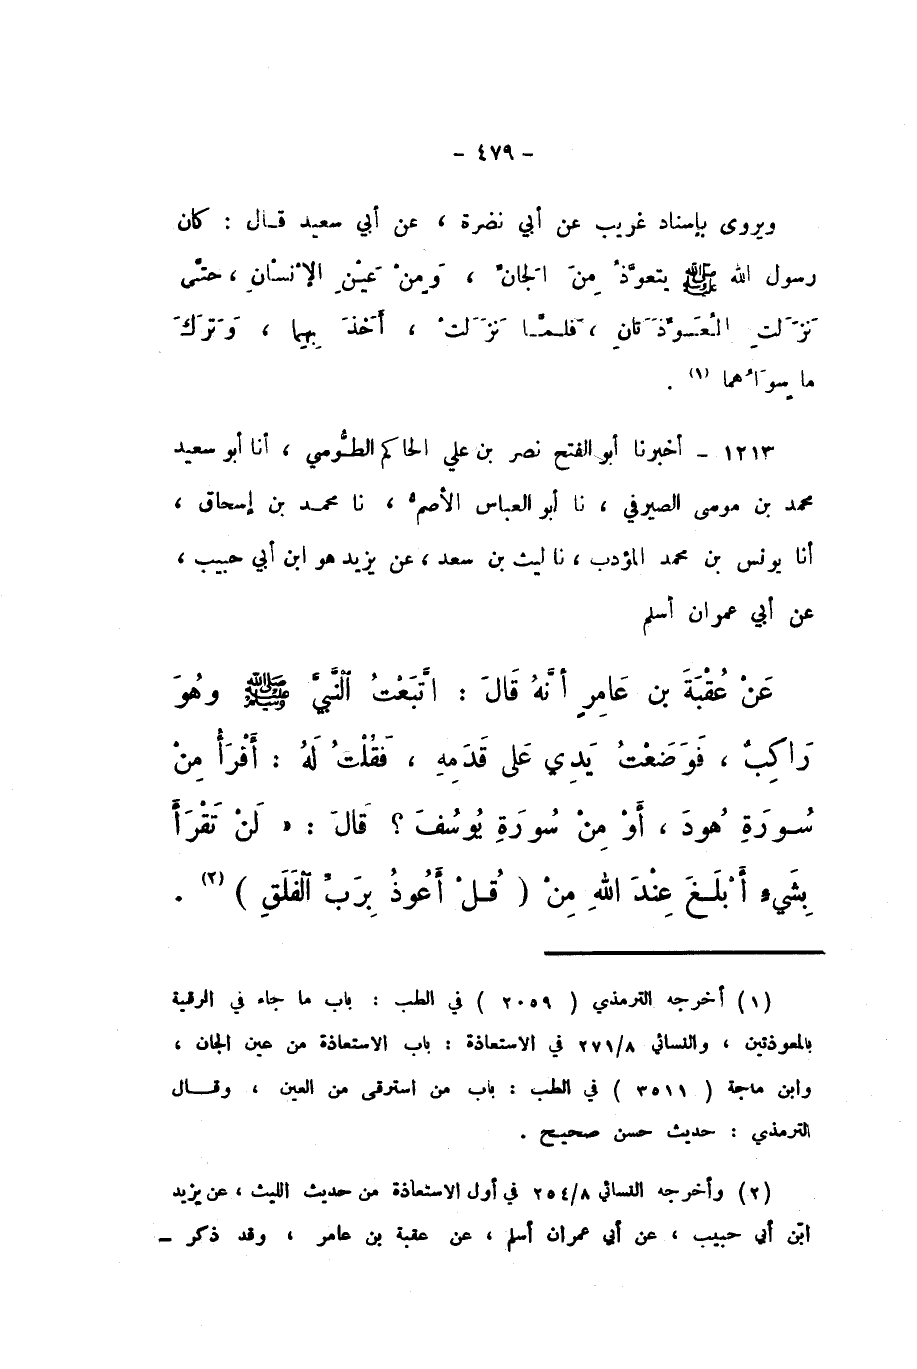 - ٤٧٩ -
ويروى بإسناد غريب عن أبي نضرة ، عن أبي سعيد قـال : كان
رسول الله ﷺ يتعوَّذُ مِنَ الجانِّ ، وَمِنْ عَيْنِ الإِنْسَانِ ، حتّى
نَزَلَتِ المُعَوِّذَتَانِ ، فَلَمَّا نَزَلَتْ ، أَخَذَ بِهِما ، وَتَرَكَ
ما سِوَاهُما (١) .
١٢١٣ - أخبرنا أبو الفتح نصر بن علي الحاكم الطُّومي ، أنا أبو سعيد
محمد بن موسى الصيرفي ، نا أبو العباس الأصمُّ ، نا محمـد بن إسحاق ،
أنا يونس بن محمد المؤدب ، نا ليث بن سعد ، عن يزيد هو ابن أبي حبيب ،
عن أبي عمران أسلم
عَنْ عُقْبَةَ بن عَامِرٍ أَنَّهُ قَالَ : اتَّبَعْتُ النَّبِيَّ ﷺ وهُوَ
رَاكِبٌ ، فَوَضَعْتُ يَدِي عَلى قَدَمِهِ ، فَقُلْتُ لَهُ : أَقْرَأُ مِنْ
سُورَةِ هُودَ ، أَوْ مِنْ سُورَةِ يُوسُفَ ؟ قَالَ : « لَنْ تَقْرَأَ
بِشَيءٍ أَبْلَغَ عِنْدَ اللهِ مِنْ ( قُلْ أَعُوذُ بِرَبِّ الْفَلَقِ ) (٢) .
(١) أخرجه الترمذي ( ٢٠٥٩ ) في الطب : باب ما جاء في الرقية
بالمعوذتين ، والنسائي ٢٧١/٨ في الاستعاذة : باب الاستعاذة من عين الجان ،
وابن ماجة ( ٣٥١١ ) في الطب : باب من استرقى من العين ، وقـــال
الترمذي : حديث حسن صحيح .
(٢) وأخرجه النسائي ٢٥٤/٨ في أول الاستعاذة من حديث الليث ، عن يزيد
ابن أبي حبيب ، عن أبي عمران أسلم ، عن عقبة بن عامر ، وقد ذكر -